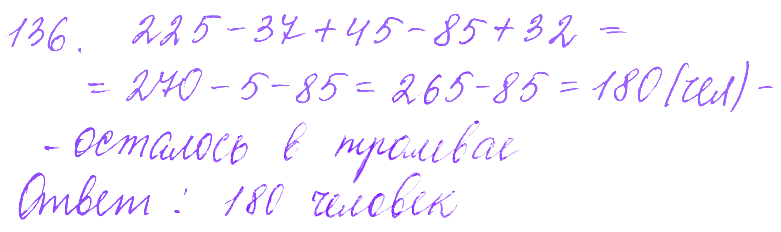 136. 225-37+45-85+32=
=270-5-85=265-85=180(чел)-
-осталось в трамвае
Ответ: 180 человек